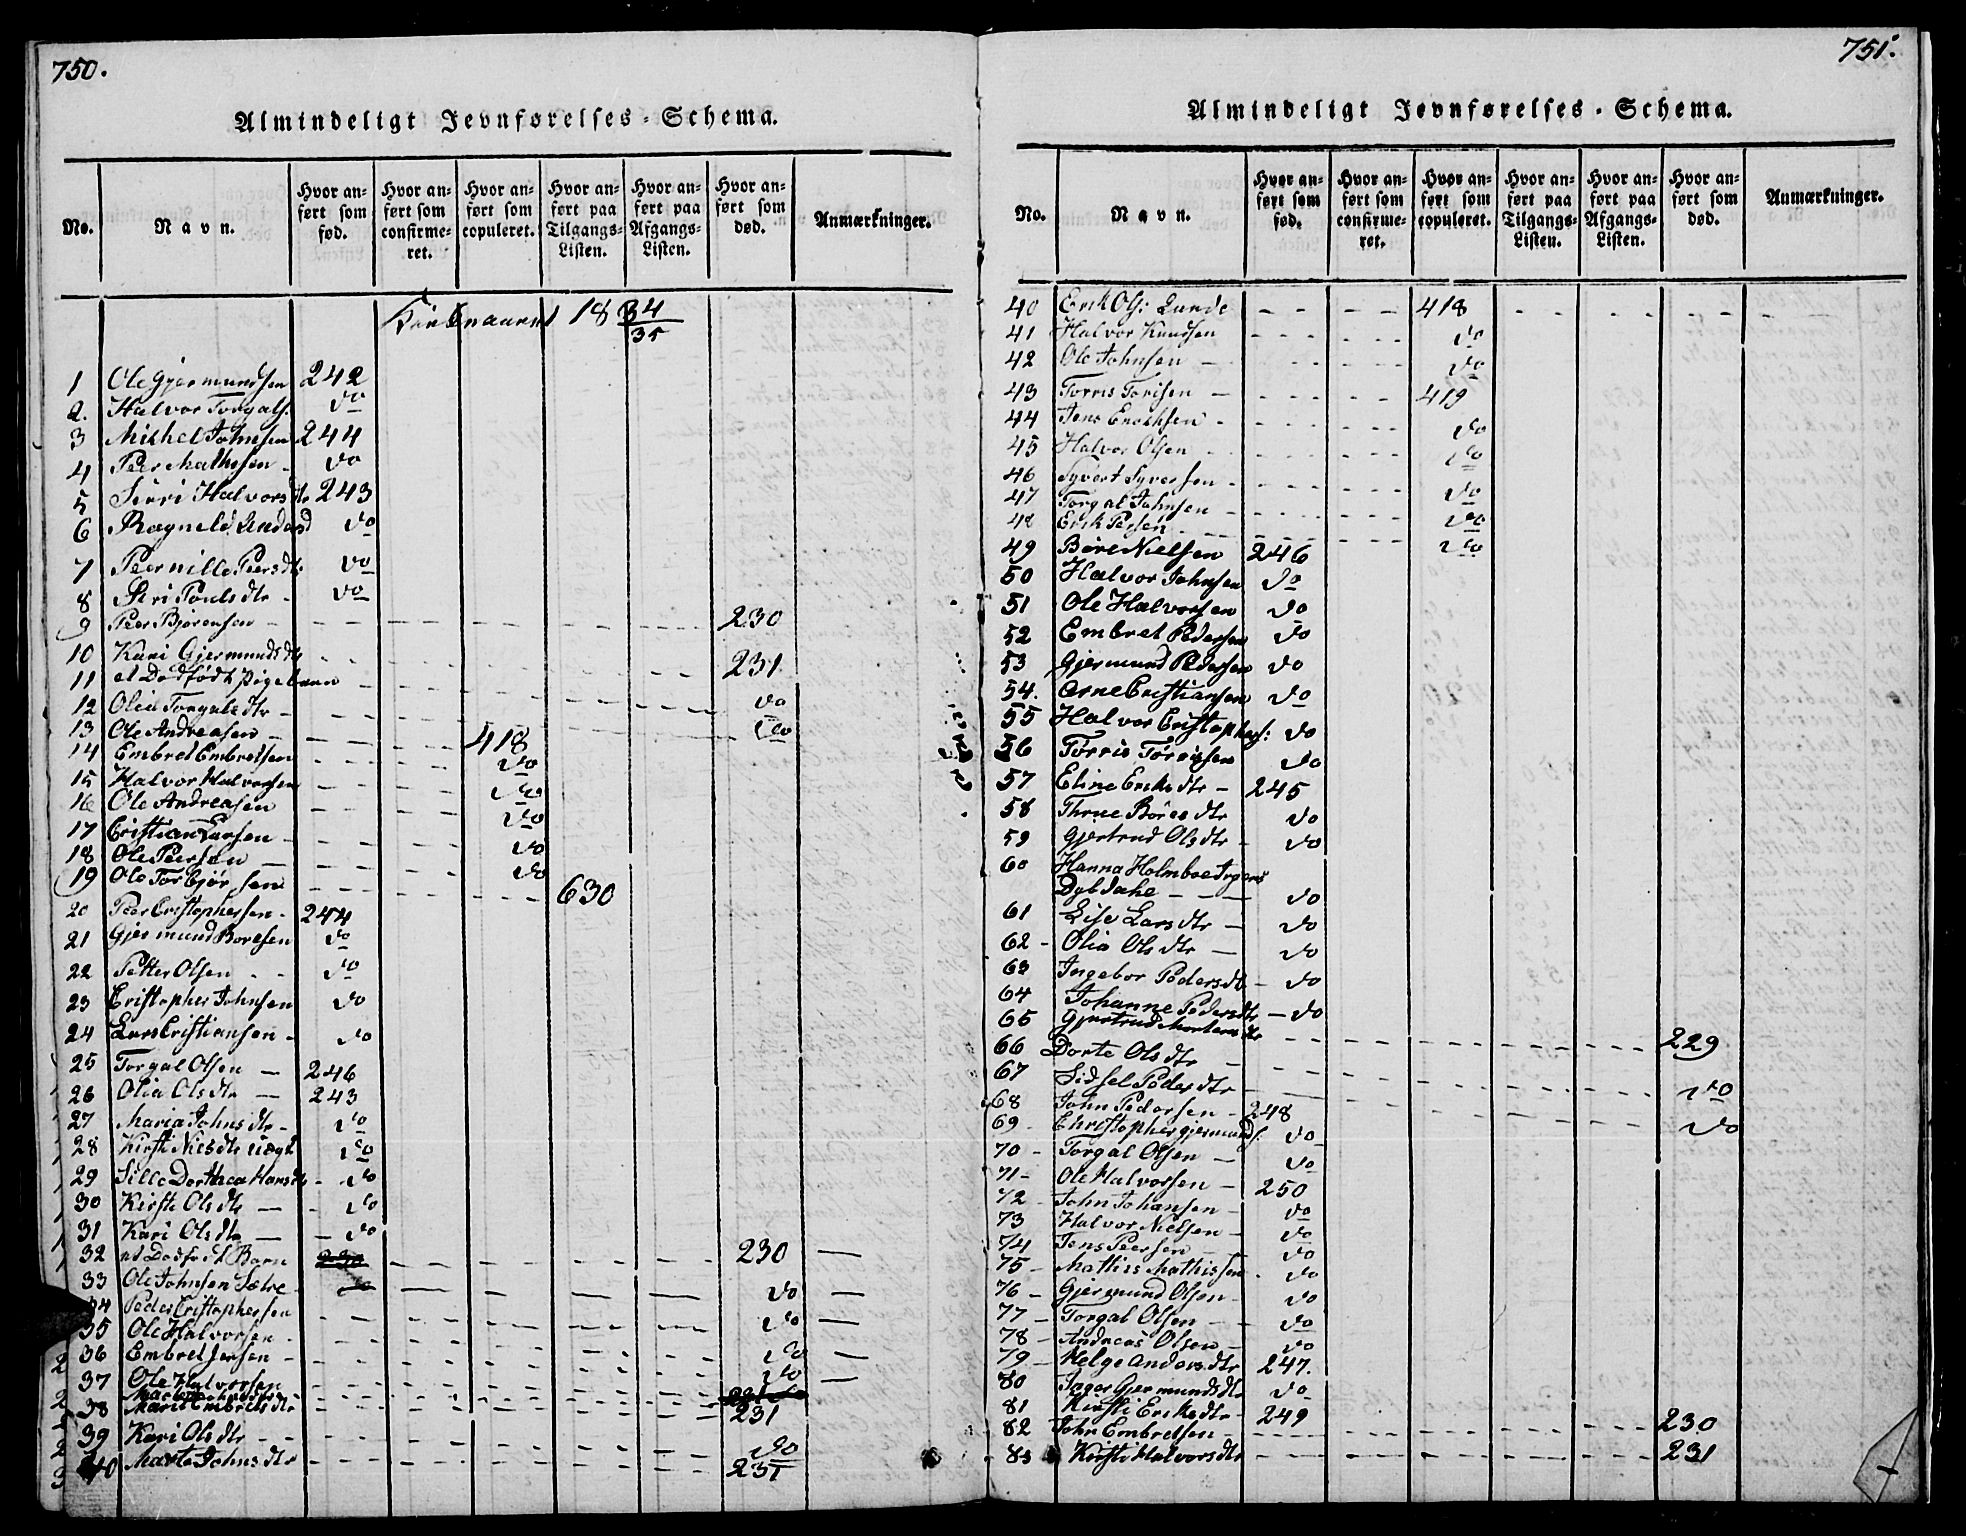 750.
Almindeligt Jevnførelses-Schema.
No.
Navn.
Hvor anført som fød.
Hvor anført som confirmeret.
Hvor anført som copuleret.
Hvor anført paa Tilgangs-Listen.
Hvor anført paa Afgangs-Listen.
Hvor anført som død.
Anmærkninger.
1834
35
1 Ole Gjermundsen 242
2. Halvor Torgals: do
3 Mikkel Johnsen 244
4 Peer Mathisen - do
5 Siuri Halvorsdtr 243
6 Ragnild do
7 Peernille Peersdtr do
8 Siri Poulsdtr - do
9 Peer Bjørensen - 230
10 Kari Gjermundsdtr 231
11 et Dødfødt Pigebarn - do
12 Olia Torgalsdtr - do
13 Ole Andreasen - 418
14 Embret Embretsen do
15 Halvor Halvorsen do
16 Ole Andreasen do
17 Cristian Larsen - do
18 Ole Peersen - do
19 Ole Torbjørsen 630
20 Peer Cristophersen - 244
21 Gjermund Boresen do
22 Petter Olsen - - do
23 Cristopher Johnsen do
24 Lars Cristiansen - do
25 Torgal Olsen - 246
26 Olia Olsdtr - 243
27 Maria Johnsdtr - do
28 Kirsti Nielsdtr uægt do
29 Sille Dorthea Hansdtr - do
30 Kirsti Olsdtr - do
31 Kari Olsdtr - do
32 et Dødfødt Barn 230 230 -
33 Ole Johnsen Sætre - do do -
34 Peder Cristophersen do -
35 Ole Halvorsen - do -
36 Embret Jensen - do -
37 Ole Halvorsen
38 Marit Embretsdtr 231
39 Kari Olsdtr - - do
40 Marte Johnsdtr 231
751.
Almindeligt Jevnførelses-Schema.
No.
Navn.
Hvor anført som fød.
Hvor anført som confirmeret.
Hvor anført som copuleret.
Hvor anført paa Tilgangs-Listen.
Hvor anført paa Afgangs-Listen.
Hvor anført som død.
Anmærkninger.
40 Erik Ols: Lunde 418
41 Halvor Knudsen do
42 Ole Johnsen - do
43 Torris Torisen - 419
44 Jens Erichsen - do
45 Halvor Olsen do
46 Syvert Syversen - do
47 Torgal Johnsen - do
48 Erik Persen do
49 Børe Nielsen 246
50 Halvor Johnsen do
51 Ole Halvorsen do
52 Embret Pedersen do
53 Gjermund Pedersen do
54. Arne Cristiansen do
55 Halvor Cristophers: do
56 Tørris Tørrissen do
57 Eline Eriksdtr - 245
58 Thrne Böresdtr do
59 Gjertrud Olsdtr - do
60 Hanna Holmboe
Dybdahl - do
61 Lise Larsdtr - do
62 - Olia Olsdtr - do
63 Ingebor Pedersdtr - do
64 Johanne Pedersdtr - do
65 Gjertrud Mortensdtr 229
66 Dorte Olsdtr - do
67 Sidsel Pedersdtr - do
68 John Pedersen - 248
69 - Christopher Gjermunds: do
70 - Torgal Olsen - do
71 - Ole Halvorsen - 250
72 - John Johansen - do
73 Halvor Nielsen - do
74 Jens Peersen - do
75 - Mathis Mathissen - do
76 - Gjermund Olsen - do
77 - Torgal Olsen - do
78 - Andreas Olsen - do
79 - Helge Andersdtr 247.
80 Inger Gjermundsdtr do
81 Kirsti Eriksdtr - 249
82 John Embretsen - 230
83 Kirsti Halvorsdtr 231